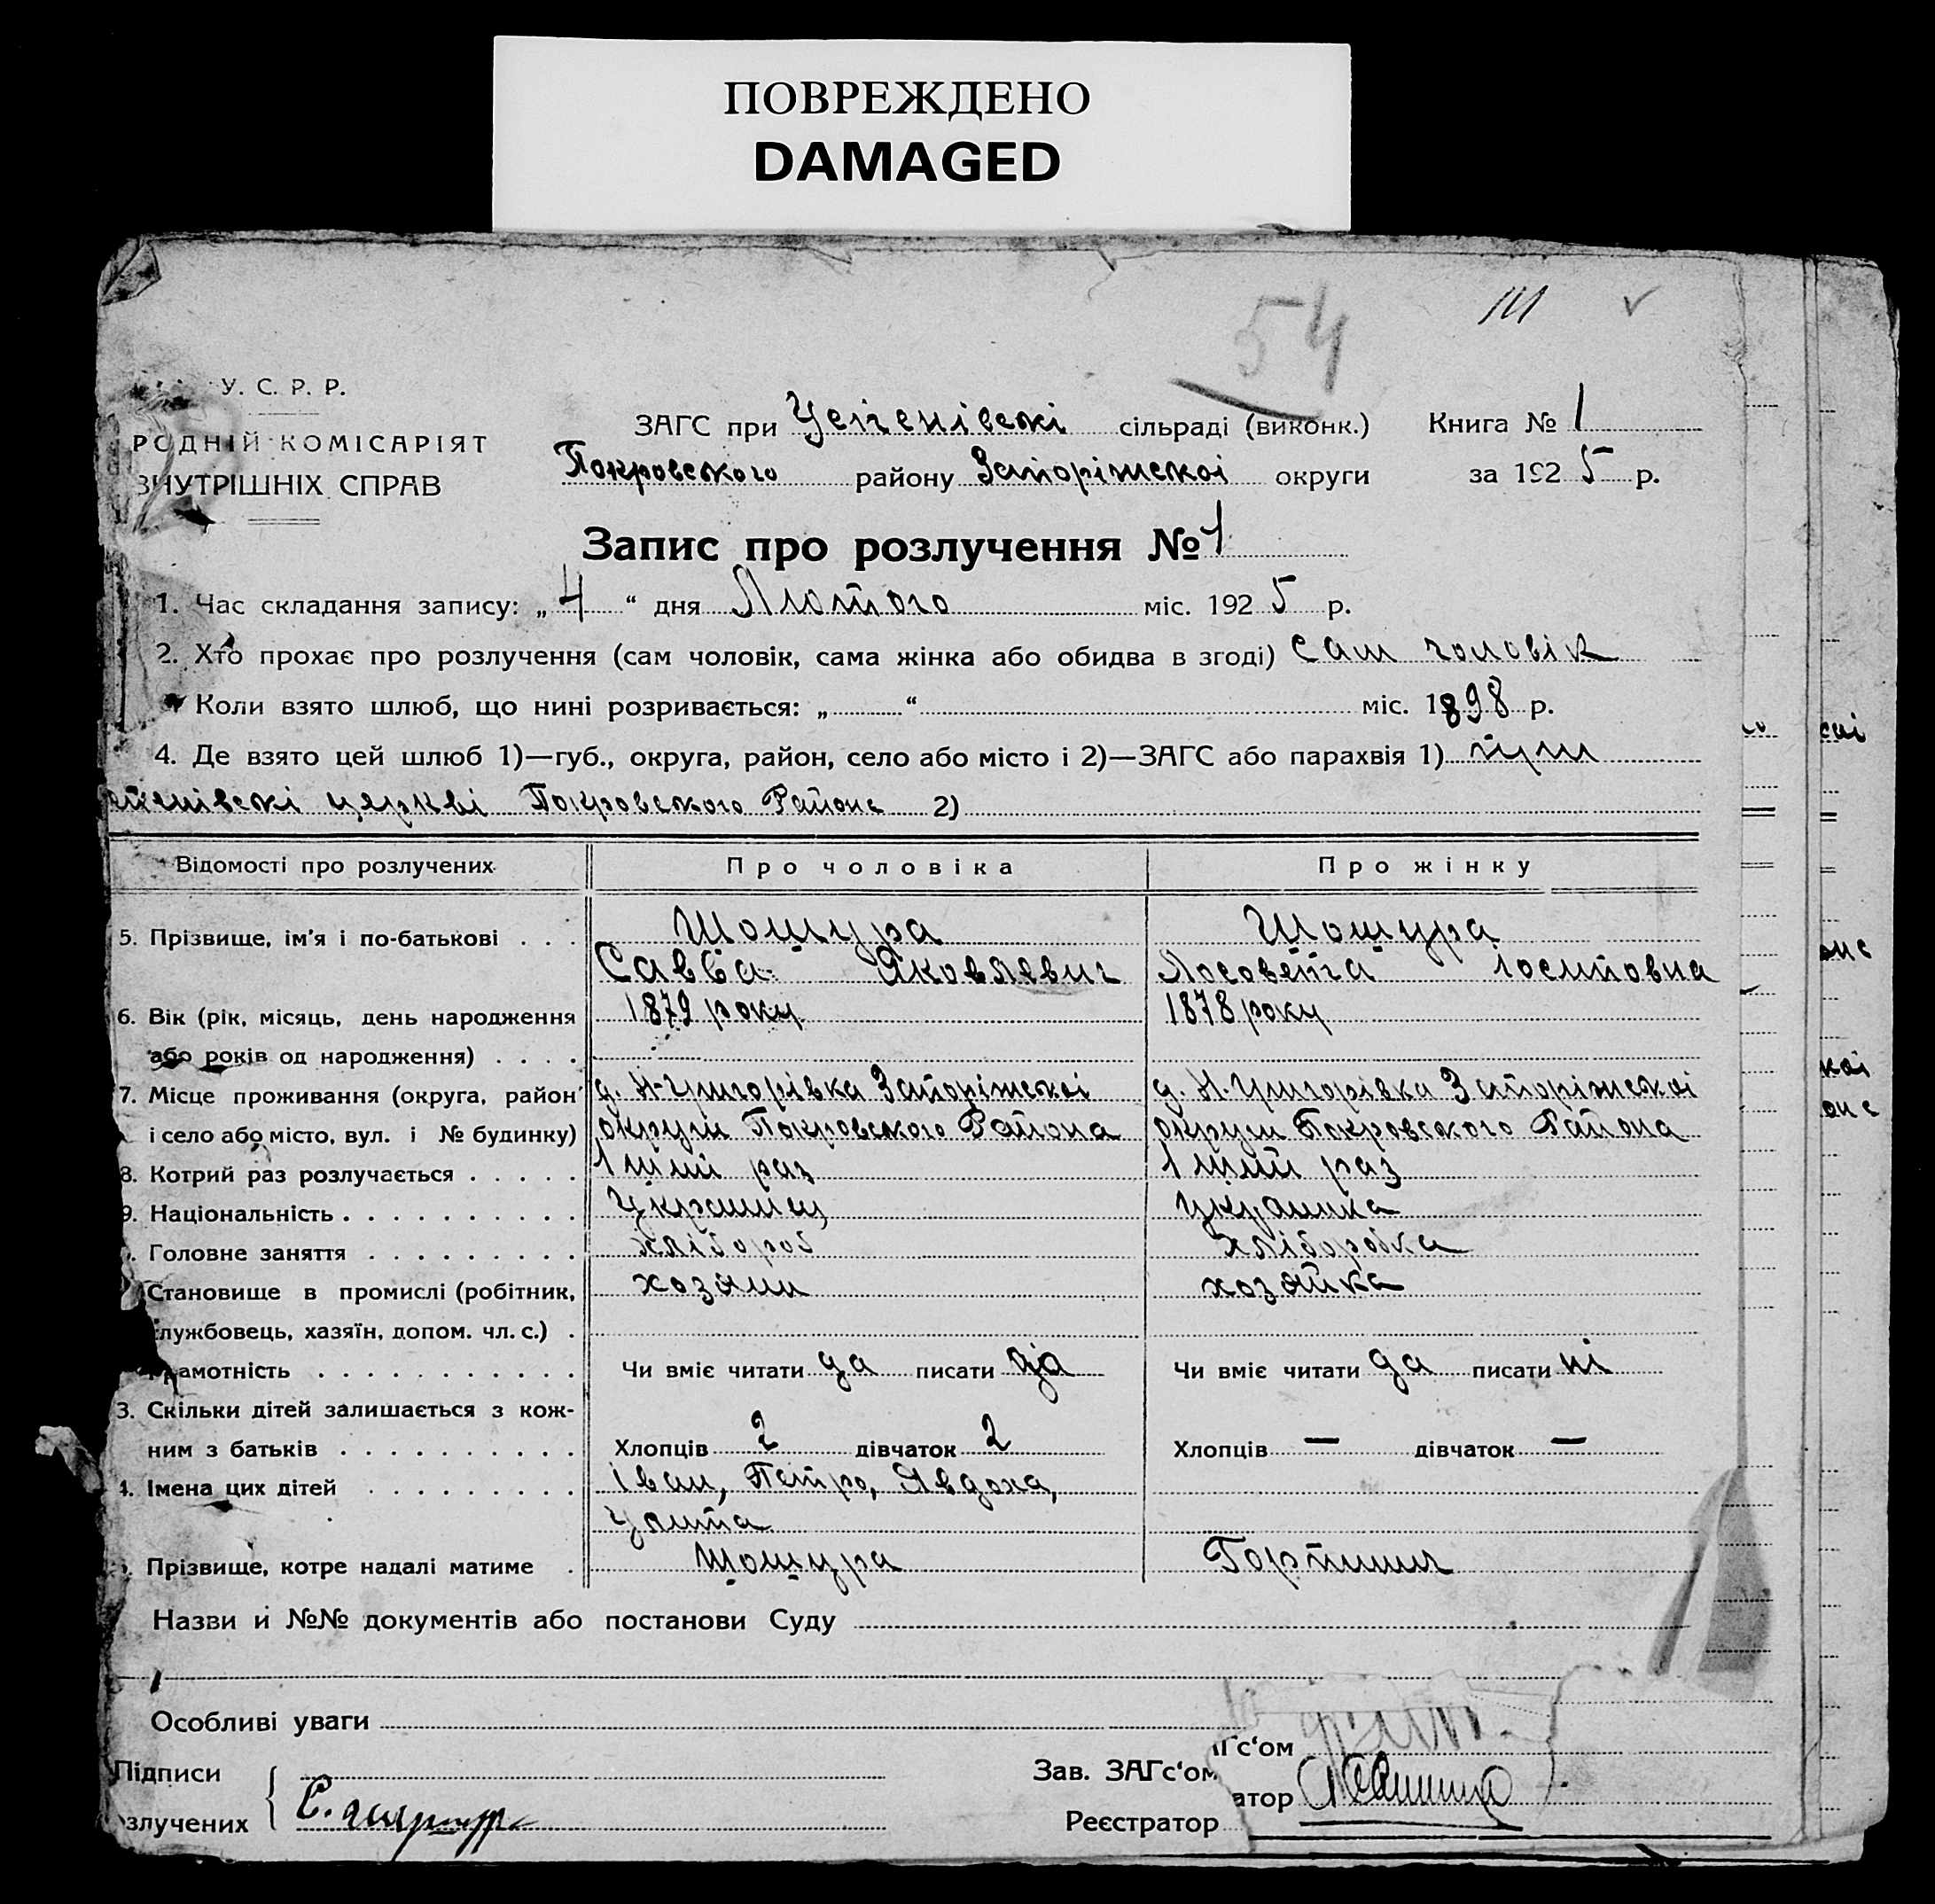 ПОВРЕЖДЕНО
DAMAGED
54
У. С. Р. Р.
РОДНІЙ КОМІСАРІЯТ
ВНУТРІШНІХ СПРАВ
ЗАГС при сільраді (виконк.) Книга № 1
Покровського району Запоріжскоі округи за 1925 р.
Запис про розлучення № 1
1. Час складання запису: „4“ дня Лютого міс. 1925 р.
2. Хто прохає про розлучення (сам чоловік, сама жінка або обидва в згоді) сам чоловік
Коли взято шлюб, що нині розривається: „ “ міс. 1898 р.
4. Де взято цей шлюб 1)—губ., округа, район, село або місто і 2)—ЗАГС або парахвія 1) при
церкві Покровського Района 2)
Відомості про розлучених Про чоловіка Про жінку
5. Прізвище, ім'я і по-батькові . . . Шошура Шошура
Савва Яковлевич
6. Вік (рік, місяць, день народження 1879 року 1878 року
або років од народження) . . . .
7. Місце проживання (округа, район д. Н-Григорівка Запоріжскоі д. Н. Григорівка Запоріжскоі
і село або місто, вул. і № будинку) округи Покровського Района округи Покровського Района
8. Котрий раз розлучається . . . . . 1 ший раз 1 ший раз
9. Національність . . . . . . . . . . Украинец Украинка
Головне заняття . . . . . . . . . хлібороб хліборобка
Становище в промислі (робітник, хозяин хозяйка
лужбовець, хазяїн, допом. чл. с.) .
рамотність . . . . . . . . . . . Чи вміє читати да писати да Чи вміє читати да писати ні
3. Скільки дітей залишається з кож-
ним з батьків . . . . . . . . . . Хлопців 2 дівчаток 2 Хлопців — дівчаток —
4. Імена цих дітей . . . . . . . . . Іван, Петро, Явдоха,
Прізвище, котре надалі матиме . Шошура
Назви й №№ документів або постанови Суду
Особливі уваги
Підписи Зав. ЗАГс‘ом Гс‘ом
злучених С. Реєстратор атор